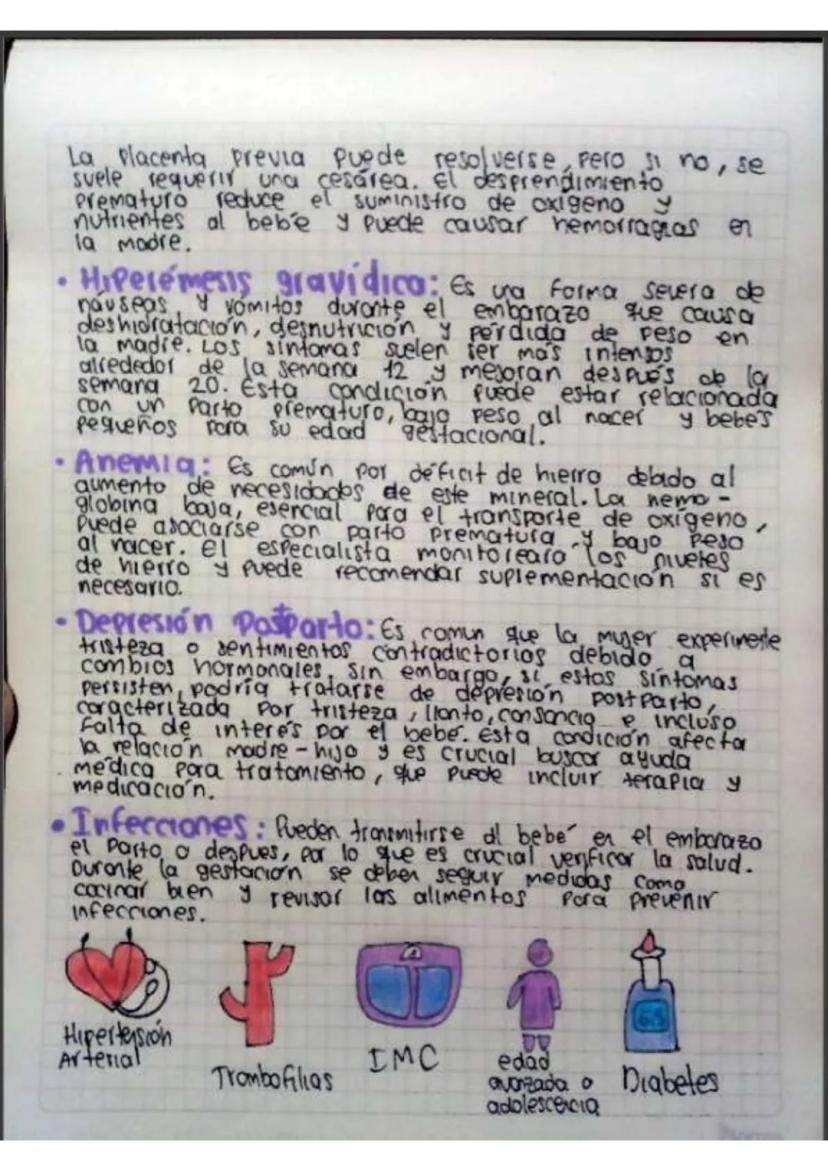 La placenta previa puede resolverse, pero si no, se
suele requerir una cesárea. El desprendimiento
prematuro reduce el suministro de oxígeno y
nutrientes al bebé y puede causar hemorragias en
la madre.
• Hiperémesis gravídica: Es una forma severa de
náuseas y vómitos durante el embarazo que causa
deshidratación, desnutrición y pérdida de peso en
la madre. Los síntomas suelen ser más intensos
alrededor de la semana 12 y mejoran después de la
semana 20. Esta condición puede estar relacionada
con un parto prematuro, bajo peso al nacer y bebés
pequeños para su edad gestacional.
• Anemia: Es común por déficit de hierro debido al
aumento de necesidades de este mineral. La hemo-
globina baja, esencial para el transporte de oxígeno,
puede asociarse con parto prematura y bajo peso
al nacer. El especialista monitoreará los niveles
de hierro y puede recomendar suplementación si es
necesario.
• Depresión Postparto: Es común que la mujer experimente
tristeza o sentimientos contradictorios debido a
cambios hormonales, sin embargo, si estos síntomas
persisten, podría tratarse de depresión postparto,
caracterizada por tristeza, llanto, cansancio e incluso
falta de interés por el bebé. Esta condición afecta
la relación madre-hijo y es crucial buscar ayuda
médica para tratamiento, que puede incluir terapia y
medicación.
• Infecciones: Pueden transmitirse al bebé en el embarazo
el parto o despues, por lo que es crucial verificar la salud.
Durante la gestación se deben seguir medidas como
cocinar bien y revisar los alimentos para prevenir
infecciones.
Hipertensión
Arterial
Trombofilias
IMC
edad
avanzada o
adolescencia
Diabetes